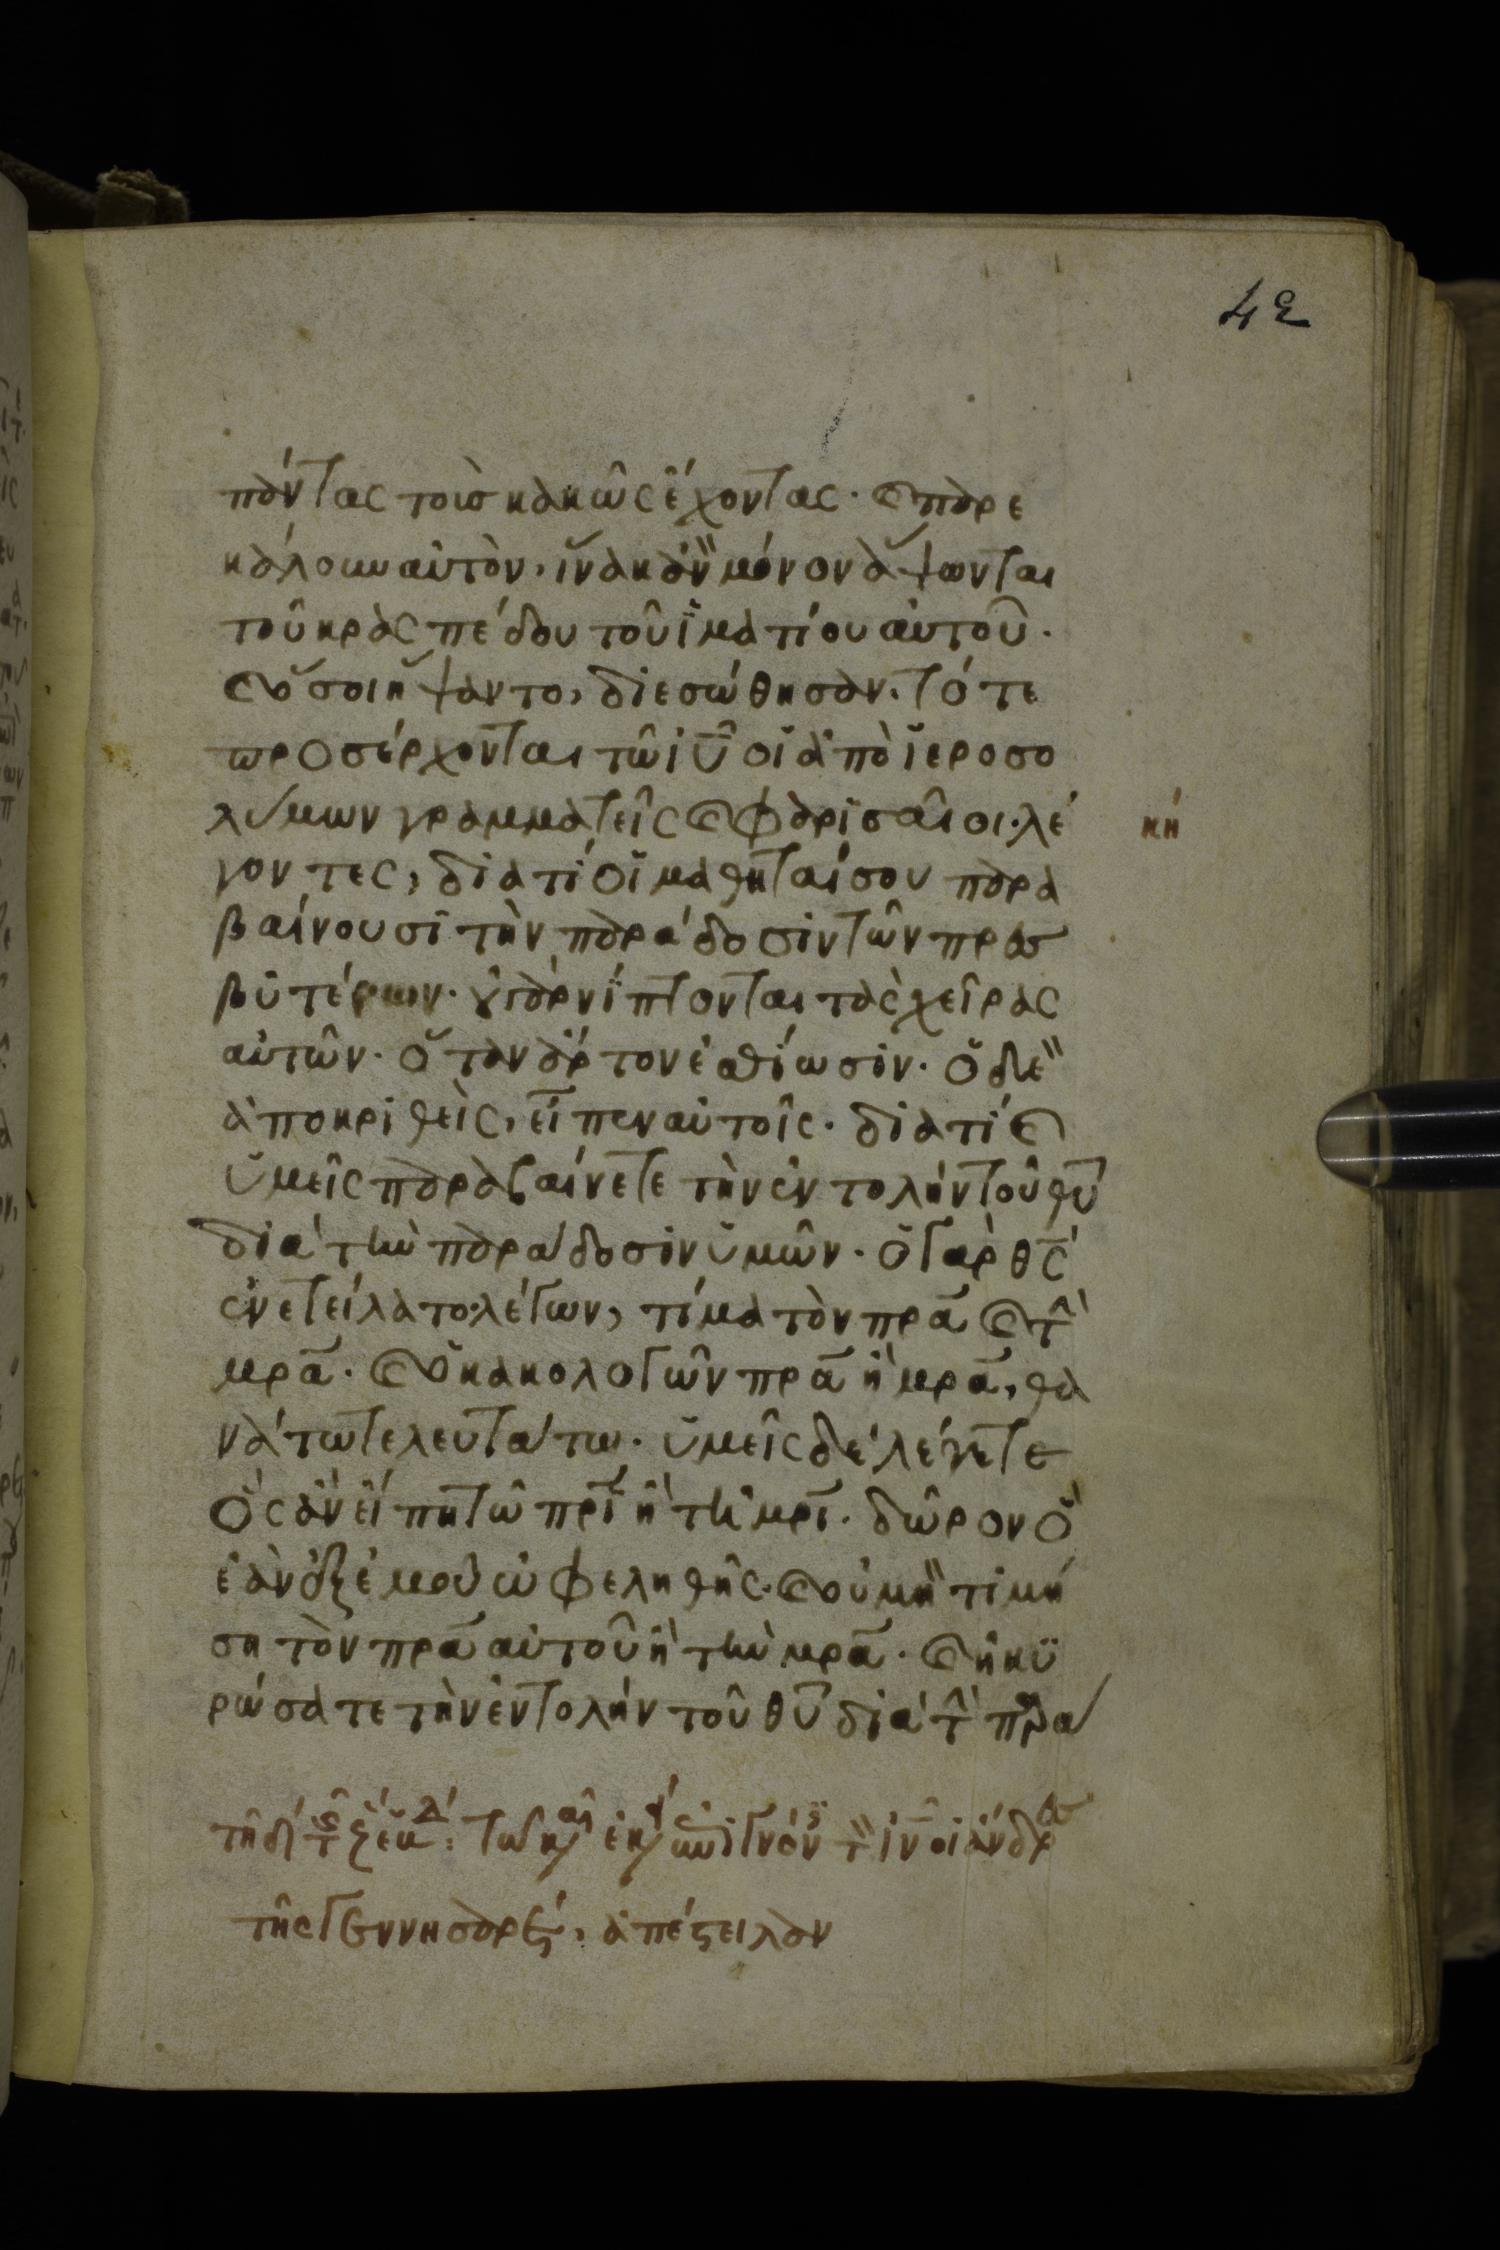 42
πάντας τοὺσ κακῶς ἔχοντας· καὶ παρε
κάλουν αὐτὸν, ἵνα κἂν μόνον ἅψωνται
τοῦ κρασπέδου τοῦ ἱματίου αὐτοῦ·
καὶ ὅσοι ἥψαντο, διεσώθησαν. τότε
προσέρχονται τῶ ιυ οἱ ἀπὸ ἱεροσο
λύμων γραμματεῖς καὶ φαρισαῖοι· λέ
κη
γοντες, διατί οἱ μαθηταί σου παρα
βαίνουσι τὴν παράδοσιν τῶν πρεσ
βυτέρων· οὐ γὰρ νίπτονται τὰς χεῖρας
αὐτῶν· ὅταν ἄρτον ἐσθίωσιν· ὁ δὲ
ἀποκριθεὶς, εἶπεν αὐτοῖς· διατί καὶ
ὑμεῖς παραβαίνετε τὴν ἐντολὴν τοῦ θυ
διὰ τὴν παράδοσιν ὑμῶν· ὁ γὰρ θς
ἐνετείλατο λέγων, τίμα τὸν πρα καὶ τὴν
μρα· καὶ ὁ κακολογῶν πρα ἢ μρα, θα
νάτω τελευτάτω· ὑμεῖς δὲ λέγετε
ὃς ἂν εἴπη τῶ πρι ἢ τῆ μρι· δῶρον ὃ
ἐὰν ἐξ ἐμοῦ ὠφεληθῆς· καὶ οὐ μὴ τιμή
ση τὸν πρα αὐτοῦ ἢ τὴν μρα· καὶ ἠκυ
ρώσατε τὴν ἐντολὴν τοῦ θυ διὰ τὴν παρά
τῶ καιρῶ ἐκείνω ἐπιγνόντες τὸν ιν οἱ ἄνδρες
τῆς γεννησαρέτ, ἀπέστειλαν